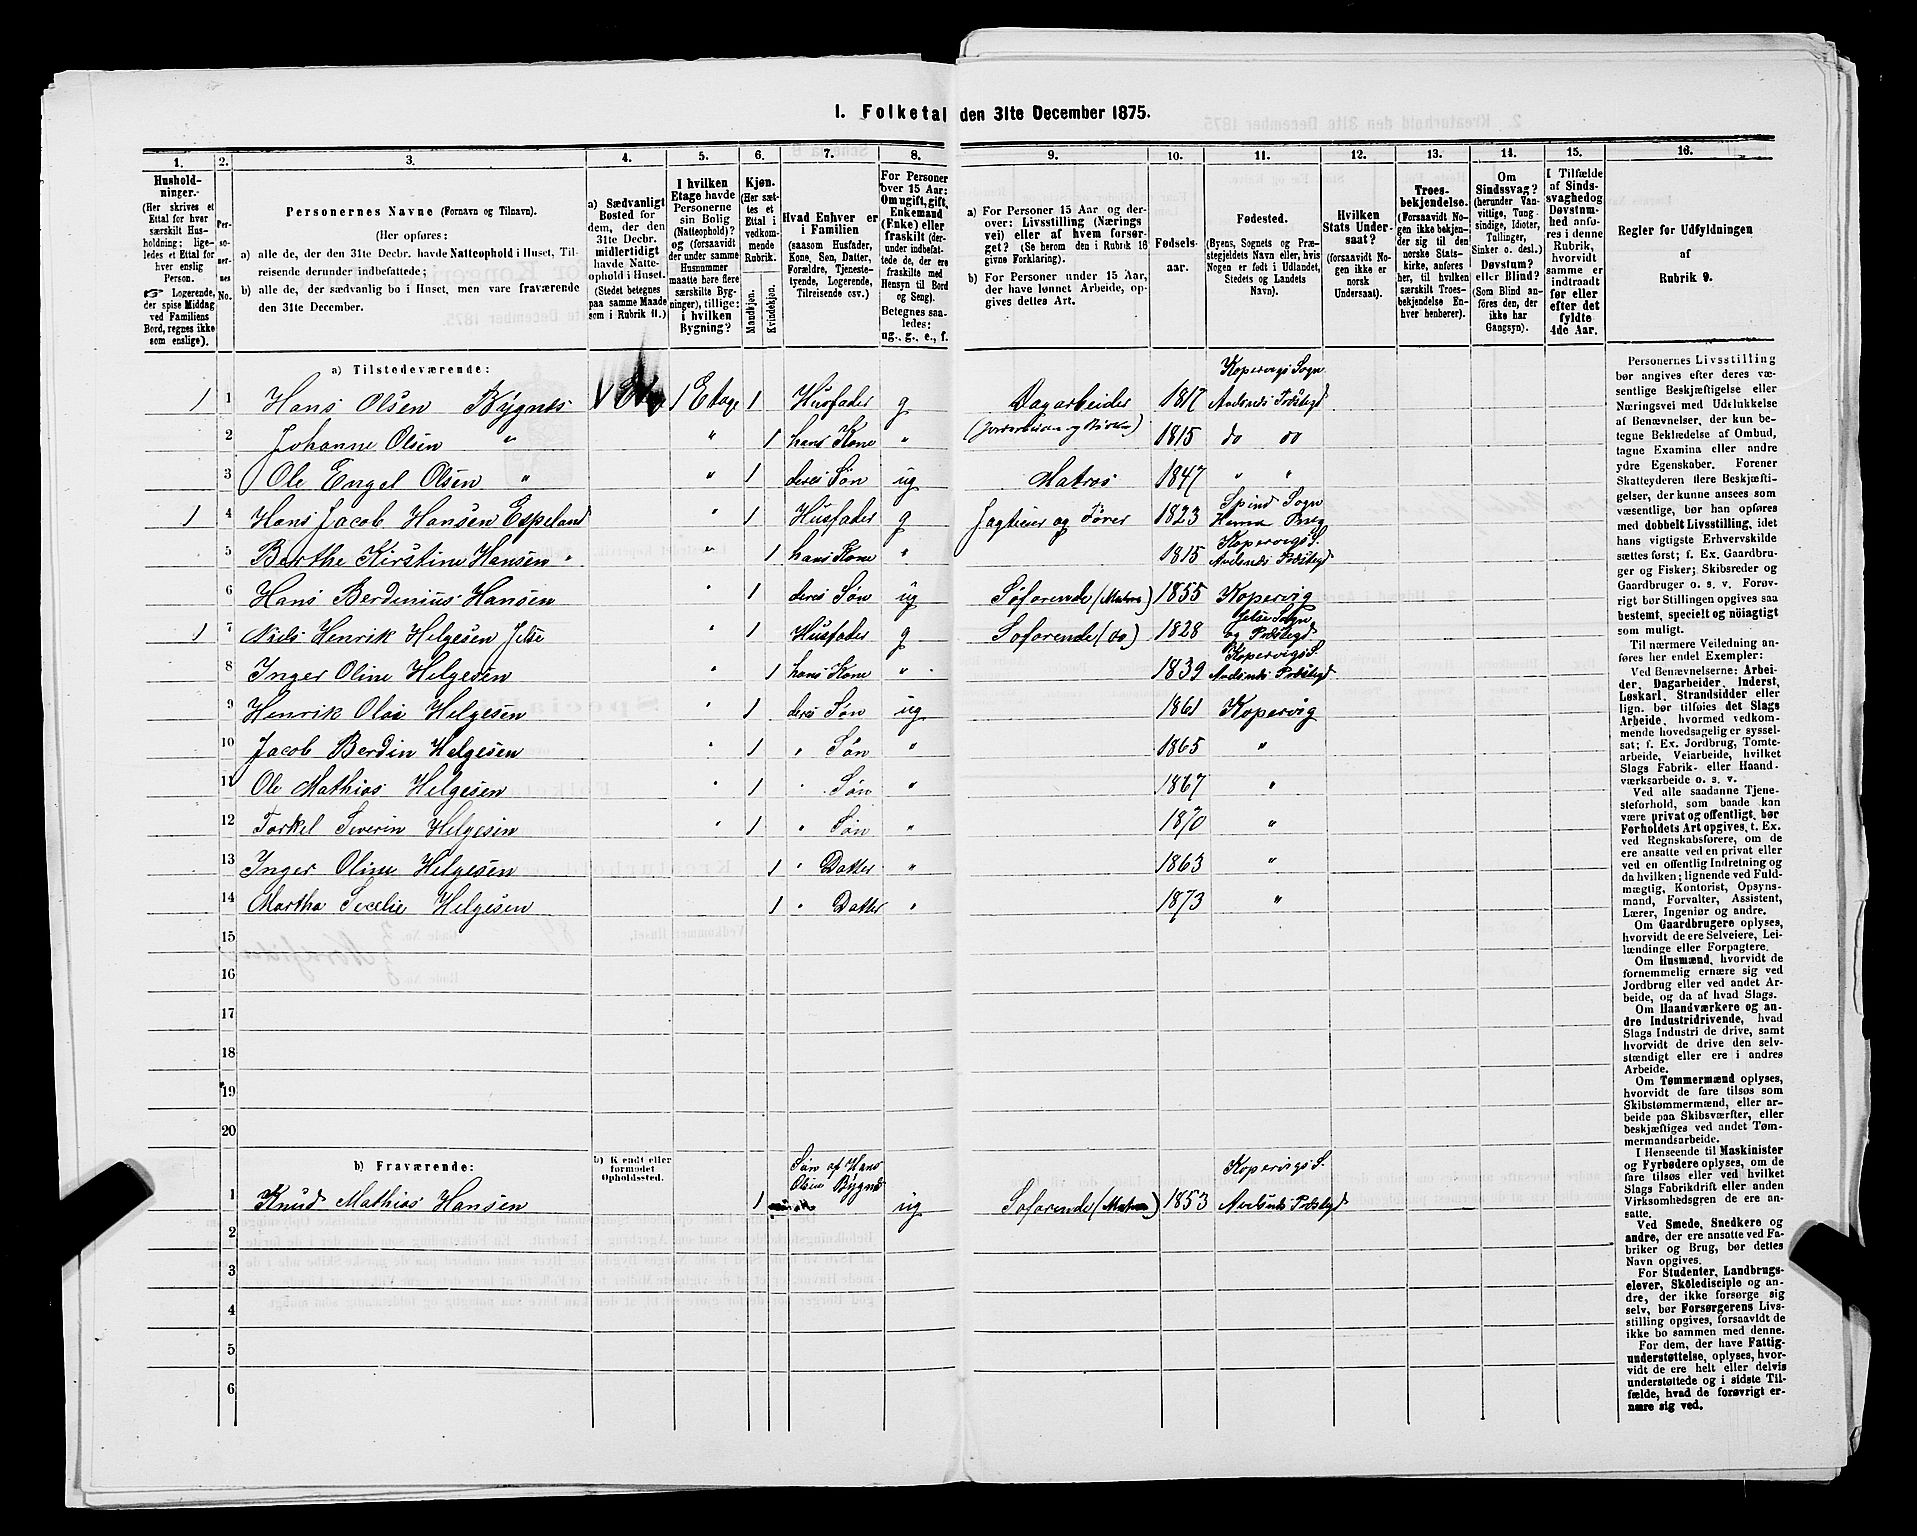 1. Folketal den 31te December 1875.
1. 2. 3. 4. 5. 6. 7. 8. 9. 10. 11. 12. 13. 14. 15. 16.
Hushold-
ninger.
(Her skrives et
Ettal for hver
særskilt Hus-
holdning; lige-
ledes et Ettal for
hver enslig
Person.
Logerende,
der spise Middag
ved Familiens
Bord, regnes ikke
som enslige).
Per-
so-
ner-
nes
No.
Personernes Navne (Fornavn og Tilnavn).
(Her opføres:
a) alle de, der den 31te Decbr. havde Natteophold i Huset, Til-
reisende derunder indbefattede;
b) alle de, der sædvanlig bo i Huset, men vare fraværende
den 31te December.
a) Sædvanligt
Bosted for
dem, der den
31te Decbr.
midlertidigt
havde Natte-
ophold i Huset.
(Stedet betegnes
paa samme Maade
som i Rubrik 11.)
I hvilken
Etage havde
Personerne
sin Bolig
(Natteophold)?
og (forsaavidt
der under samme
Husnummer
maatte høre flere
særskilte Byg-
ninger), tillige:
i hvilken
Bygning?
Kjøn.
(Her sæt-
tes et
Ettal i
vedkom-
mende
Rubrik.
Mandkjøn.
Kvindekjøn.
Hvad Enhver er
i Familien
(saasom Husfader,
Kone, Søn, Datter,
Forældre, Tjeneste-
tyende, Logerende,
Tilreisende osv.)
For Personer
over 15 Aar:
Om ugift, gift,
Enkemand
(Enke) eller
fraskilt (der-
under indbefat-
tede de, der ere
fraskilte med
Hensyn til Bord
og Seng)
Betegnes saa-
ledes:
ug., g., e., f.
a) For Personer 15 Aar og der-
over: Livsstilling (Nærings
vei) eller af hvem forsør-
get? (Se herom den i Rubrik 16
givne Forklaring).
b) For Personer under 15 Aar,
der have lønnet Arbeide, op-
gives dettes Art.
Fødsels-
aar.
Fødested.
(Byens, Sognets og Præ-
stegjeldets Navn eller, hvis
Nogen er født i Udlandet,
Stedets og Landets
Navn).
Hvilken
Stats Under-
saat?
(forsaavidt No-
gen ikke er
norsk
Undersaat).
Troes-
bekjendelse.
(Forsaavidt No-
gen ikke bekjen-
der sig til den
norske Stats-
kirke, anføres
her, til hvilken
særskilt Troes-
bekjendelse En-
hver henhører).
Om
Sindssvag?
(herunder Van-
vittige, Tung-
sindige, Idioter,
Tullinger,
Sinker o. desl.)
Døvstum?
eller Blind?
(Som Blind an-
føres den, der
ikke har
Gangsyn).
I Tilfælde
af Sinds-
svaghed og
Døvstum-
hed anfø-
res i denne
Rubrik,
hvorvidt
samme er
indtraadt
før eller
efter det
fyldte
4de Aar.
Regler for Udfyldningen
af
Rubrik 9.
a) Tilstedeværende:
1 1 Hans Olsen Bygnes 1 Etage 1 Husfader g Dagarbeider 1817 Kopervigs Sogn
2 Johanne Olsen " " 1 hans Kone " 1815 do do
3 Ole Engel Olsen " " 1 deres Søn ug Matros 1847 " "
1 4 Hans Jacob Hansen Espeland " 1 Husfader g 1823 Spind Sogn
5 Berthe Kirstine Hansen " " 1 hans Kone " 1815 Kopervigs S.
6 Hans Berdinius Hansen " 1 deres Søn ug Søfarende (Matros) 1855 Kopervig
1 7 Niels Henrik Helgesen Jelse " 1 Husfader g Søfarende (do) 1828 Gelse Sogn
og Præstegd
8 Inger Oline Helgesen " 1 hans Kone " 1839 Kopervigs S.
9 Henrik Olai Helgesen 1 deres Søn ug 1861 Kopervig
10 Jacob Berdin Helgesen " 1 " Søn " 1865 "
11 Ole Mathias Helgesen " 1 " Søn " 1867 "
12 Torkel Severin Helgesen " 1 " Søn " 1870 "
13 Inger Oline Helgesen 1 " Datter " 1863 "
14 Martha Secelie Helgesen 1 " Datter " 1873 "
15
16
17
18
19
20
b) Fraværende:
b) Kjendt eller
formodet
Opholdssted.
Søn af Hans
Olsen Bygnes
1 Knud Mathias Hansen 1 ug Søfarende (Matros) 1853 Kopervigs S.
2
3
4
5
6
Personernes Livsstilling
bør angives efter deres væ-
sentlige Beskjæftigelse eller
Næringsvei med Udelukkelse
af Benævnelser, der kun be-
tegne Beklædelse af Ombud,
tagne Examina eller andre
ydre Egenskaber. Forener
Skatteyderen flere Beskjæfti-
gelser, der kunne ansees som
væsentlige, bør han opføres
med dobbelt Livsstilling, idet
hans vigtigste Erhvervskilde
sættes først; f. Ex. Gaardbru-
ger og Fisker; Skibsreder og
Gaardbruger o. s. v. Forøv-
rigt bør Stillingen opgives saa
bestemt, specielt og nöiagtigt
som muligt.
Til nærmere Veiledning an-
føres her endel Exempler:
Ved Benævnelserne: Arbei-
der, Dagarbeider, Inderst,
Løskarl, Strandsidder eller
lign. bør tilføies det Slags
Arbeide, hvormed vedkom-
mende hovedsagelig er syssel-
sat; f. Ex. Jordbrug, Tomte-
arbeide, Veiarbeide, hvilket
Slags Fabrik- eller Haand-
værksarbeide o. s. v.
Ved alle saadanne Tjene-
steforhold, som baade kan
være privat og offentligt, bør
Forholdets Art opgives, t. Ex.
ved Regnskabsførere, om de
ere ansatte ved en privat eller
ved en offentlig Indretning og
da hvilken; lignende ved Fuld-
mægtig, Kontorist, Opsyns-
mand, Forvalter, Assistent,
Lærer, Ingeniør og andre.
Om Gaardbrugere oplyses,
hvorvidt de ere Selveiere, Lei-
lændinge eller Forpagtere.
Om Husmænd, hvorvidt de
fornemmelig ernære sig ved
Jordbrug eller ved andet Ar-
beide, og da af hvad Slags.
Om Haandværkere og an-
dre Industridrivende, hvad
Slags Industri de drive, samt
hvorvidt de drive den selv-
stændigt eller ere i andres
Arbeide.
Om Tømmermænd oplyses,
hvorvidt de fare tilsøs som
Skibstømmermænd, eller ar-
beide paa Skibsværfter, eller
beskjæftiges ved andet Tøm-
mermandsarbeide.
I Henseende til Maskinister
og Fyrbødere oplyses, om de
fare tilsøs eller ved hvilket
Slags Fabrikdrift eller anden
Virksomhedsgren de ere an-
satte.
Ved Smede, Snedkere og
andre, der ere ansatte ved Fa-
briker og Brug, bør dettes
Navn opgives.
For Studenter, Landbrugs-
elever, Skoledisciple og an-
dre, der ikke forsørge sig
selv, bør Forsørgerens Livs-
stilling opgives, forsaavidt de
ikke bo sammen med denne.
For dem, der have Fattig-
understøttelse, oplyses, hvor-
vidt de ere helt eller delvis
understøttede og i sidste Til-
fælde, hvad de forøvrigt er-
nære sig ved.